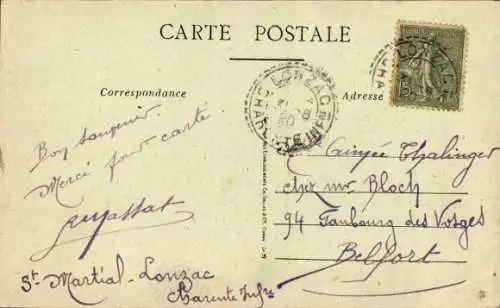 CARTE POSTALE
Correspondance
Adresse
LONZAC
CHARENTE INFRE
15
Bon souvenir.
Merci pour carte
St Martial-Lonzac
Charente Infre
Aimée Thalinger
chez mr Bloch
94 Faubourg des Vosges
Belfort